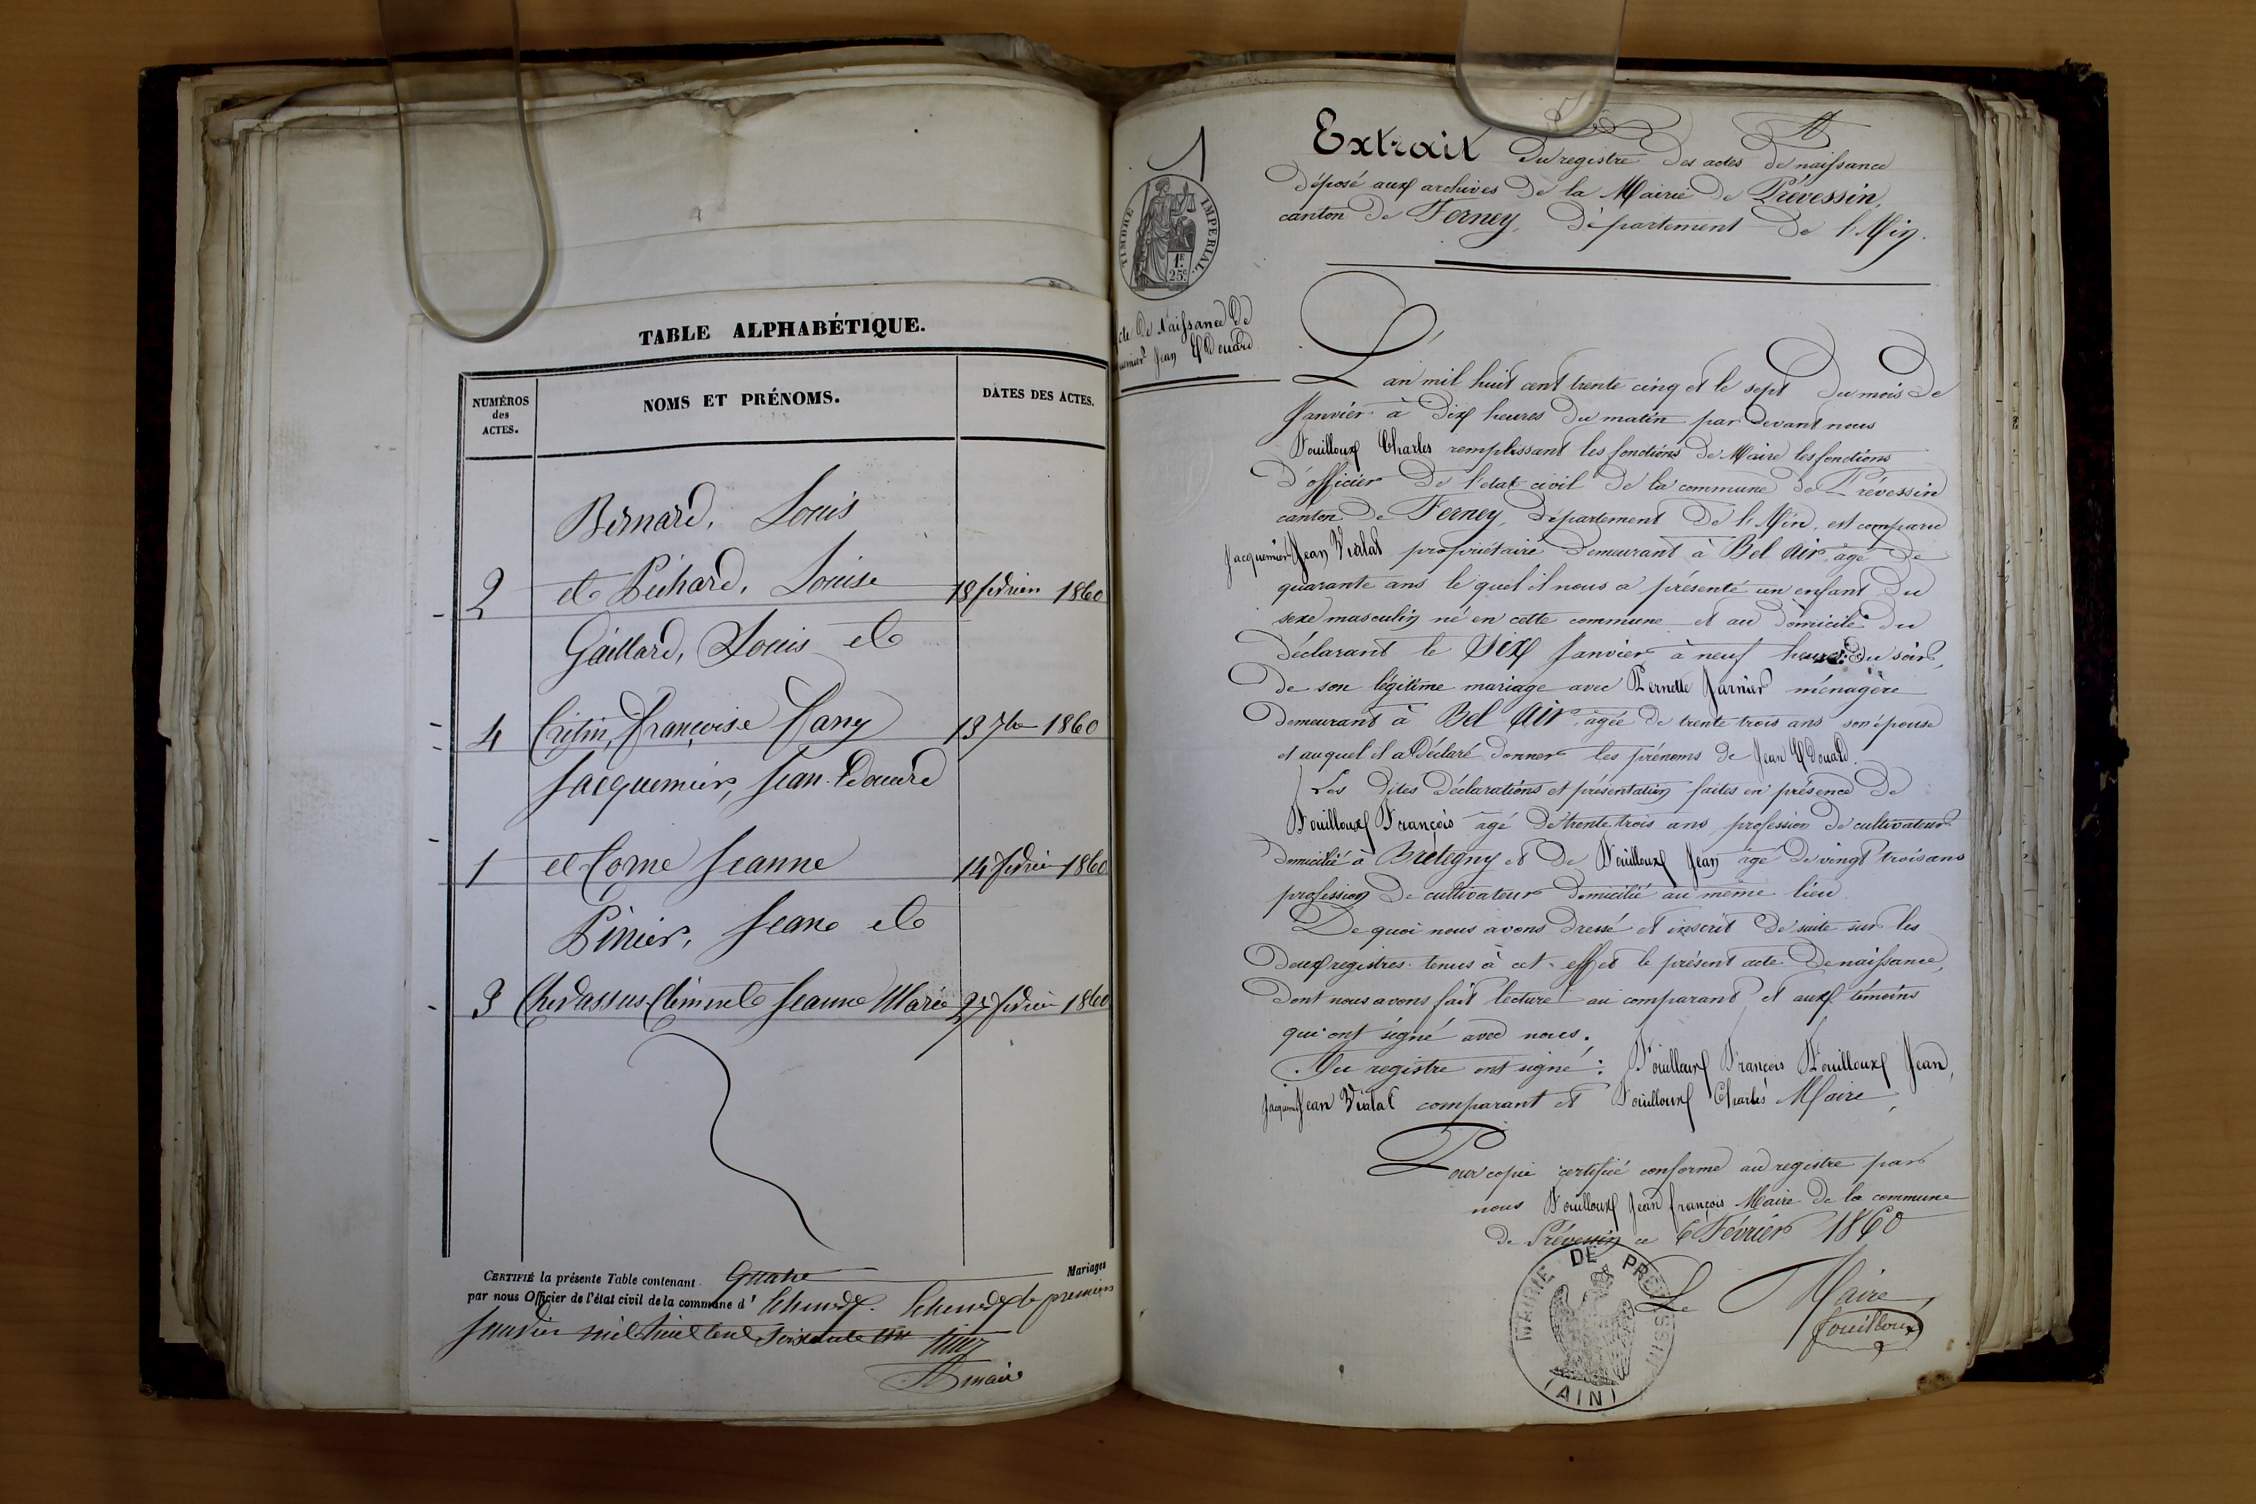 TABLE ALPHABÉTIQUE.
NUMÉROS des ACTES.
NOMS ET PRÉNOMS.
DATES DES ACTES.
Bernard, Louis
2 et Péchard, Louise 18 février 1860
Gaillard, Louis et
4 Françoise Fany 13 7bre 1860
Jacquemier, Jean-Edouard
1 et Corne Jeanne 14 février 1860
Pinier, Jean et
3 Chevassus Climente Jeanne Marie 27 février 1860
CERTIFIÉ la présente Table contenant quatre Mariages
par nous Officier de l'état civil de la commune d' Echenevex. Echenevex le premier
janvier mil huit cent soixante un
maire
1
TIMBRE IMPÉRIAL.
1F 25c
Acte de Naissance de
Jacquemier Jean Edouard
Extrait du registre des actes de naissance
déposé aux archives de la Mairie de Prévessin,
canton de Ferney, département de l'Ain.
L'an mil huit cent trente cinq et le sept du mois de
Janvier à dix heures du matin par devant nous
Fouilloux Charles remplissant les fonctions de Maire les fonctions
d'officier de l'état civil de la commune de Prévessin
canton de Ferney, département de l'Ain, est comparu
Jacquemier Jean Vialat propriétaire demeurant à Bel Air, âgé de
quarante ans le quel il nous a présenté un enfant du
sexe masculin né en cette commune et au domicile du
déclarant le Six Janvier à neuf heures du soir,
de son légitime mariage avec Pernette Garnier ménagère
demeurant à Bel Air, âgée de trente trois ans son épouse
et auquel il a déclaré donner les prénoms de Jean Edouard.
Les dites déclarations et présentation faites en présence de
Fouilloux François âgé de trente trois ans, profession de cultivateur
domicilié à Bretegny et de Fouilloux Jean âgé de vingt trois ans
profession de cultivateur domicilié au même lieu
De quoi nous avons dressé et inscrit de suite sur les
deux registres tenus à cet effet le présent acte de naissance,
dont nous avons fait lecture au comparant et aux témoins
qui ont signé avec nous.
Au registre ont signé: Fouilloux François Fouilloux Jean,
Jacquemier Jean Vialat comparant et Fouilloux Charles Maire,
Pour copie certifié conforme au registre par
nous Fouilloux Jean françois Maire de la commune
de Prévessin ce 6 Février 1860
Le Maire
Fouilloux
MAIRIE DE PREVESSIN
(AIN)